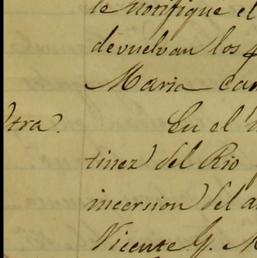 le notifique el
devuelvan los
Maria
Otra. En el
tinez del Rio
incersion del a
Vicente G. M